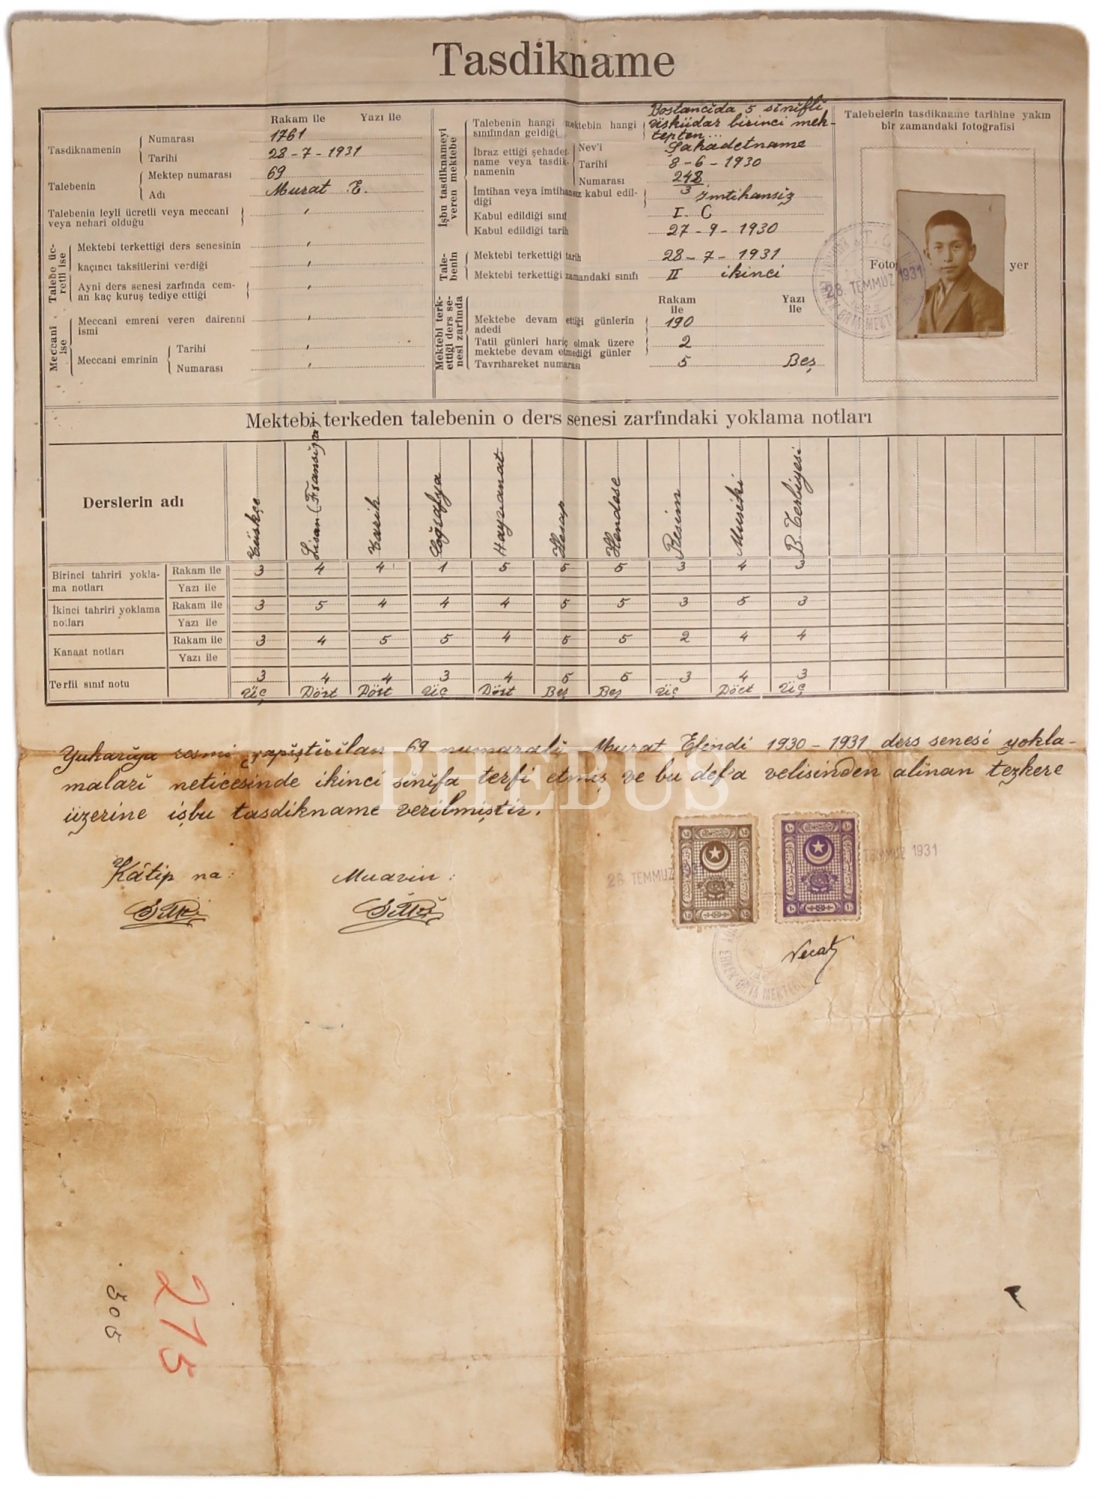 Tasdikname
Rakam ile Yazı ile
Tasdiknamenin
Numarası 1761
Tarihi 28-7-1931
Talebenin
Mektep numarası 69
Adı Murat E.
Talebenin leyli ücretli veya meccani
veya nehari olduğu
Talebe üc-
retli ise
Mektebi terkettiği ders senesinin
kaçıncı taksitlerini verdiği
Ayni ders senesi zarfında cem-
an kaç kuruş tediye ettiği
Meccani
ise
Meccani emreni veren dairenni
ismi
Meccani emrinin
Tarihi
Numarası
İşbu tasdiknameyi
veren mektebe
Talebenin hangi mektebin hangi
sınıfından geldiği
Bostancida 5 sinifli
Üsküdar birinci mek-
tepten...
İbraz ettiği şehadet-
name veya tasdik-
namenin
Nev'i Şahadetname
Tarihi 8-6-1930
Numarası 248
3
İmtihan veya imtihansız kabul edil-
diği
İmtihansiz
Kabul edildiği sınıf I. C
Kabul edildiği tarih 27-9-1930
Tale-
benin
Mektebi terkettiği tarih 28-7-1931
Mektebi terkettiği zamandaki sınıfı II ikinci
Mektebi terk-
ettiği ders se-
nesi zarfında
Rakam
ile
Yazı
ile
Mektebe devam ettiği günlerin
adedi
190
Tatil günleri hariç olmak üzere
mektebe devam etmediği günler
2
Tavrıhareket numarası 5 Beş
Talebelerin tasdikname tarihine yakın
bir zamandaki fotoğrafisi
Foto yer
28 TEMMUZ 1931
Mektebi terkeden talebenin o ders senesi zarfındaki yoklama notları
Derslerin adı Türkçe Lisan (Fransızca) Tarih Coğrafya Hayvanat Hesap Hendese Resim Musiki B. Terbiyesi
Birinci tahriri yokla-
ma notları
Rakam ile 3 4 4 1 5 5 5 3 4 3
Yazı ile
İkinci tahriri yoklama
notları
Rakam ile 3 5 4 4 4 5 5 3 5 3
Yazı ile
Kanaat notları
Rakam ile 3 4 5 5 4 5 5 2 4 4
Yazı ile
Terfii sınıf notu 3 4 4 3 4 5 5 3 4 3
Üç Dört Dört Üç Dört Beş Beş Üç Dört Üç
Yukarıya resmi yapiştirilan 69 numarali Murat Efendi 1930-1931 ders senesi yokla-
malari neticesinde ikinci sinifa terfi etmiş ve bu def'a velisinden alinan tezkere
üzerine işbu tasdikname verilmiştir.
PHEBUS
Kâtip na: Muavin:
28 TEMMUZ 1931
TEMMUZ 1931
Necat
215
505